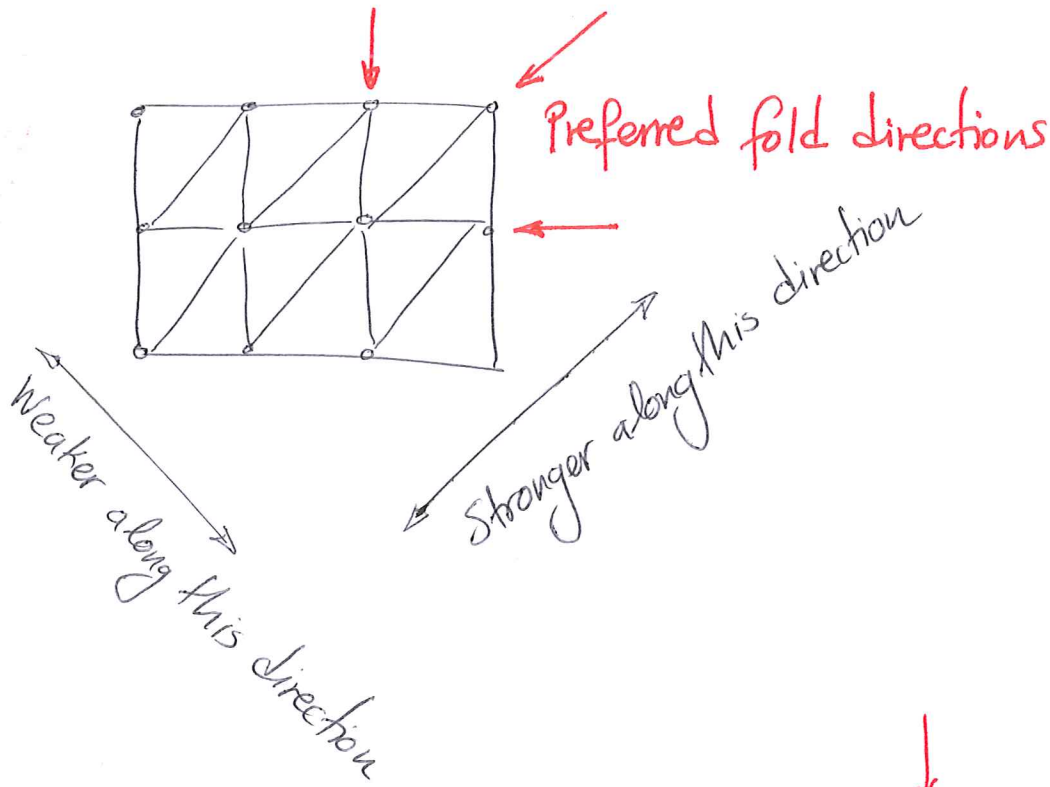 Preferred fold directions
Stronger along this direction
Weaker along this direction